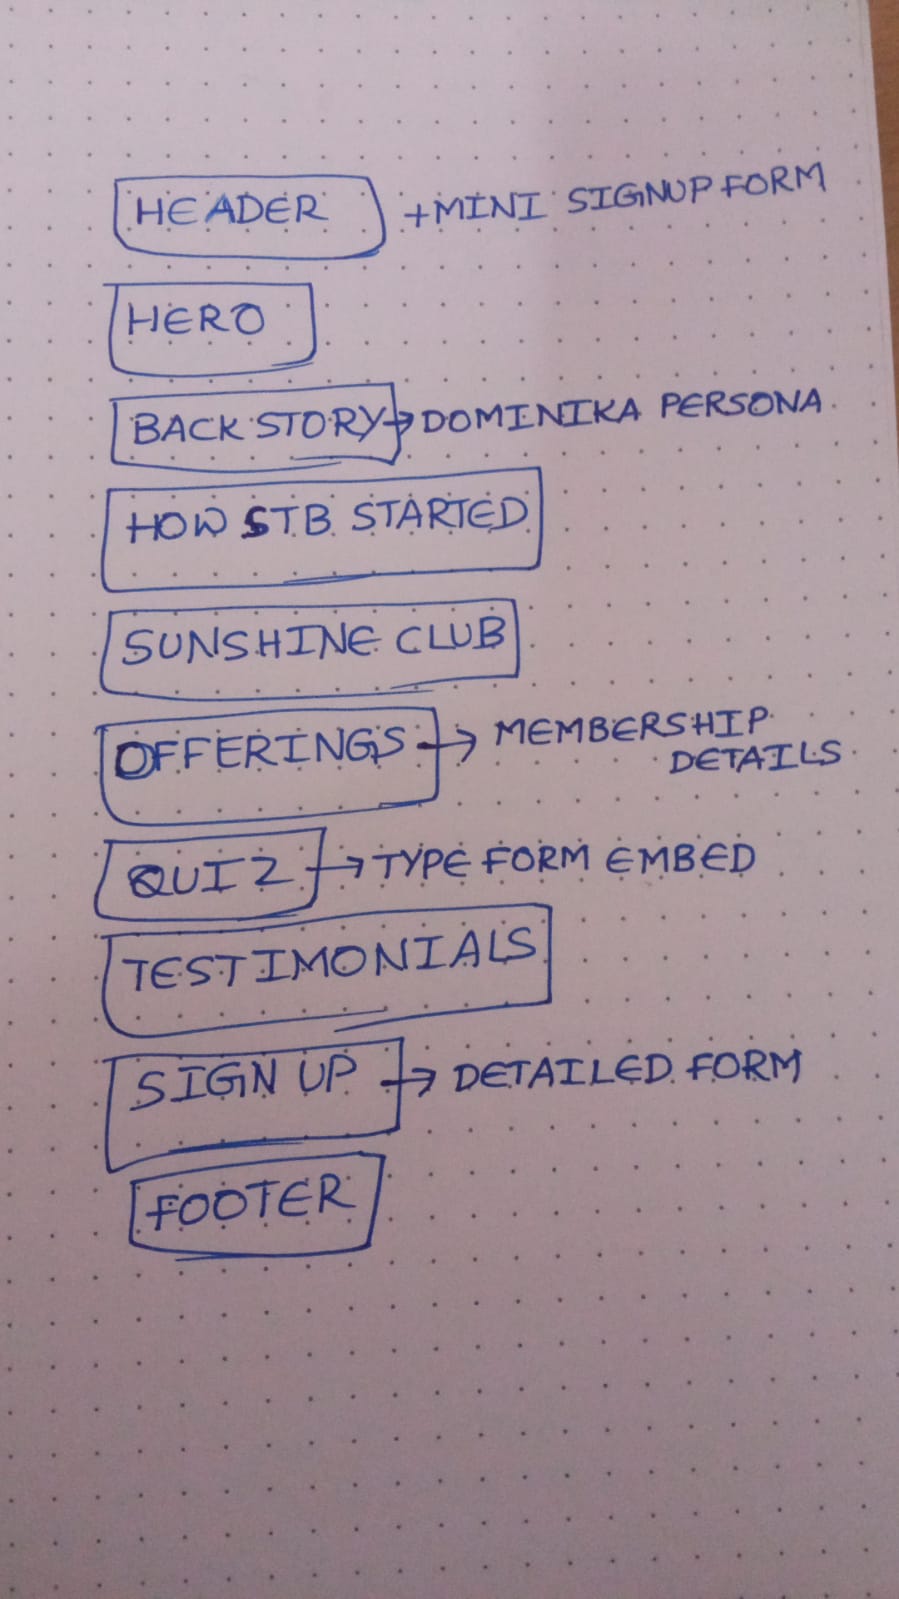 HEADER +MINI SIGNUP FORM
HERO
BACK STORY → DOMINIKA PERSONA
HOW STB STARTED
SUNSHINE CLUB
OFFERINGS → MEMBERSHIP
DETAILS
QUIZ → TYPE FORM EMBED
TESTIMONIALS
SIGN UP → DETAILED FORM
FOOTER